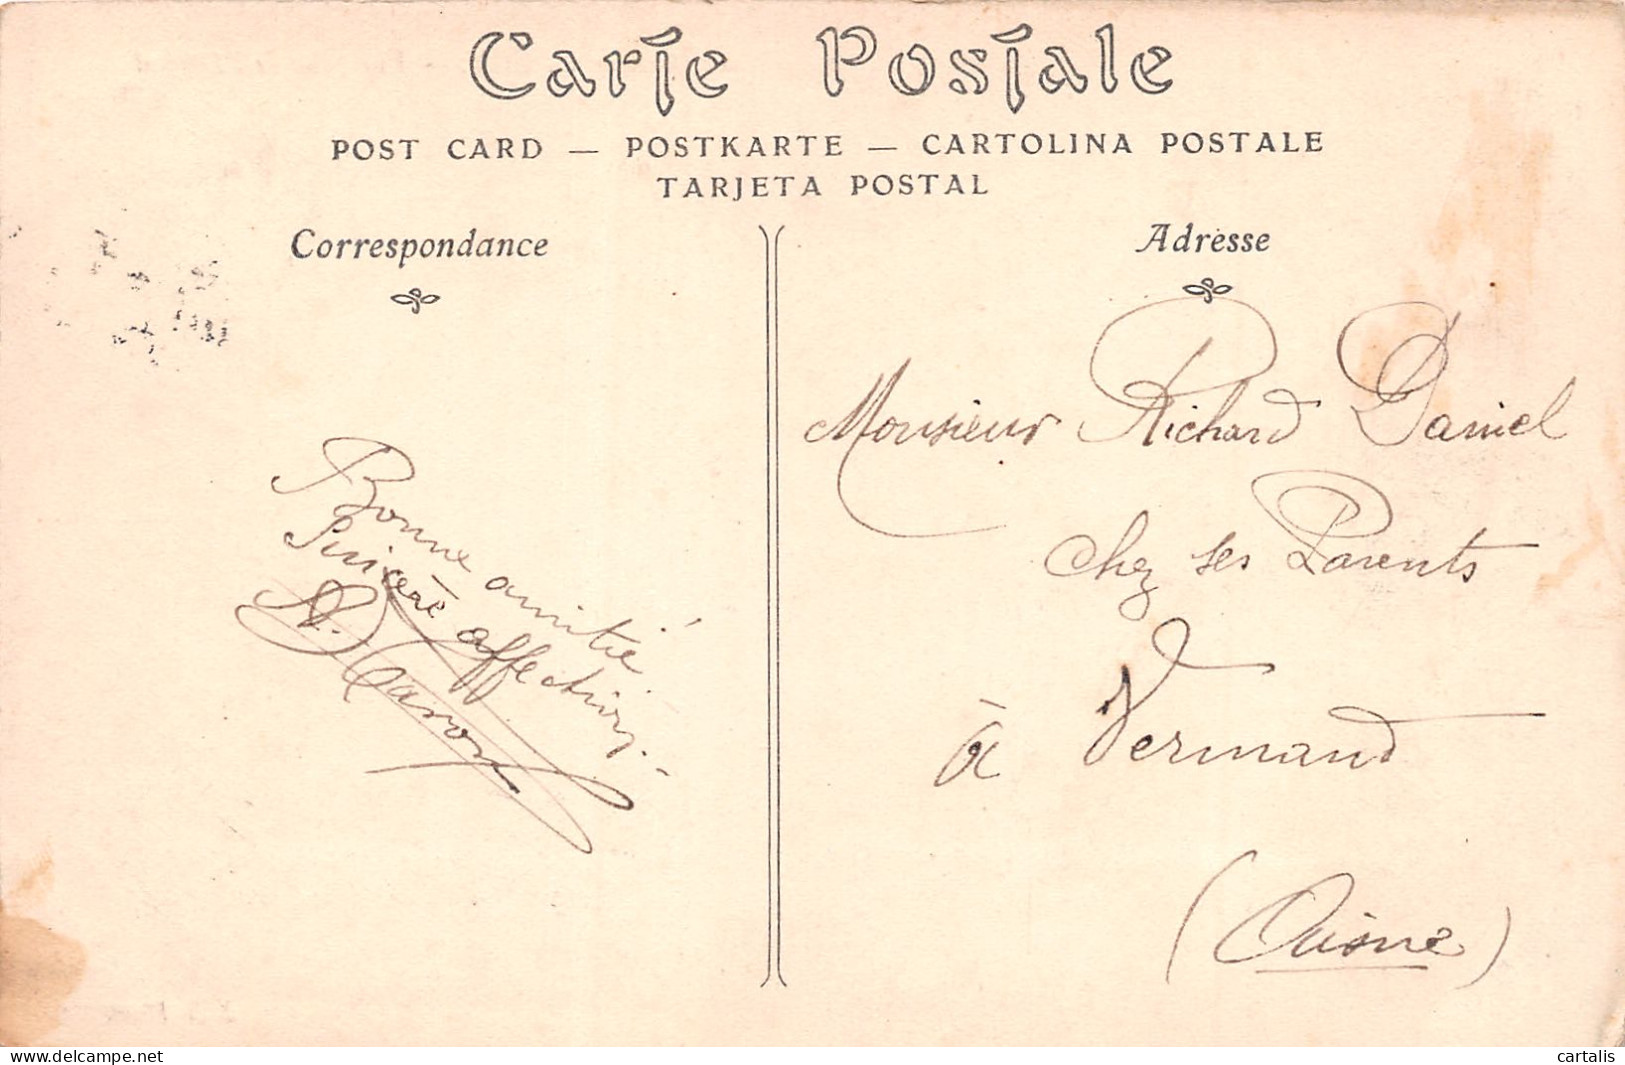 Carte Postale
POST CARD — POSTKARTE — CARTOLINA POSTALE
TARJETA POSTAL
Correspondance
Adresse
Bonne amitié
Sincère affection.
Caron
Monsieur Richard Daniel
chez ses Parents
à Vermand
(Aisne)
website : www.delcampe.net
cartalis